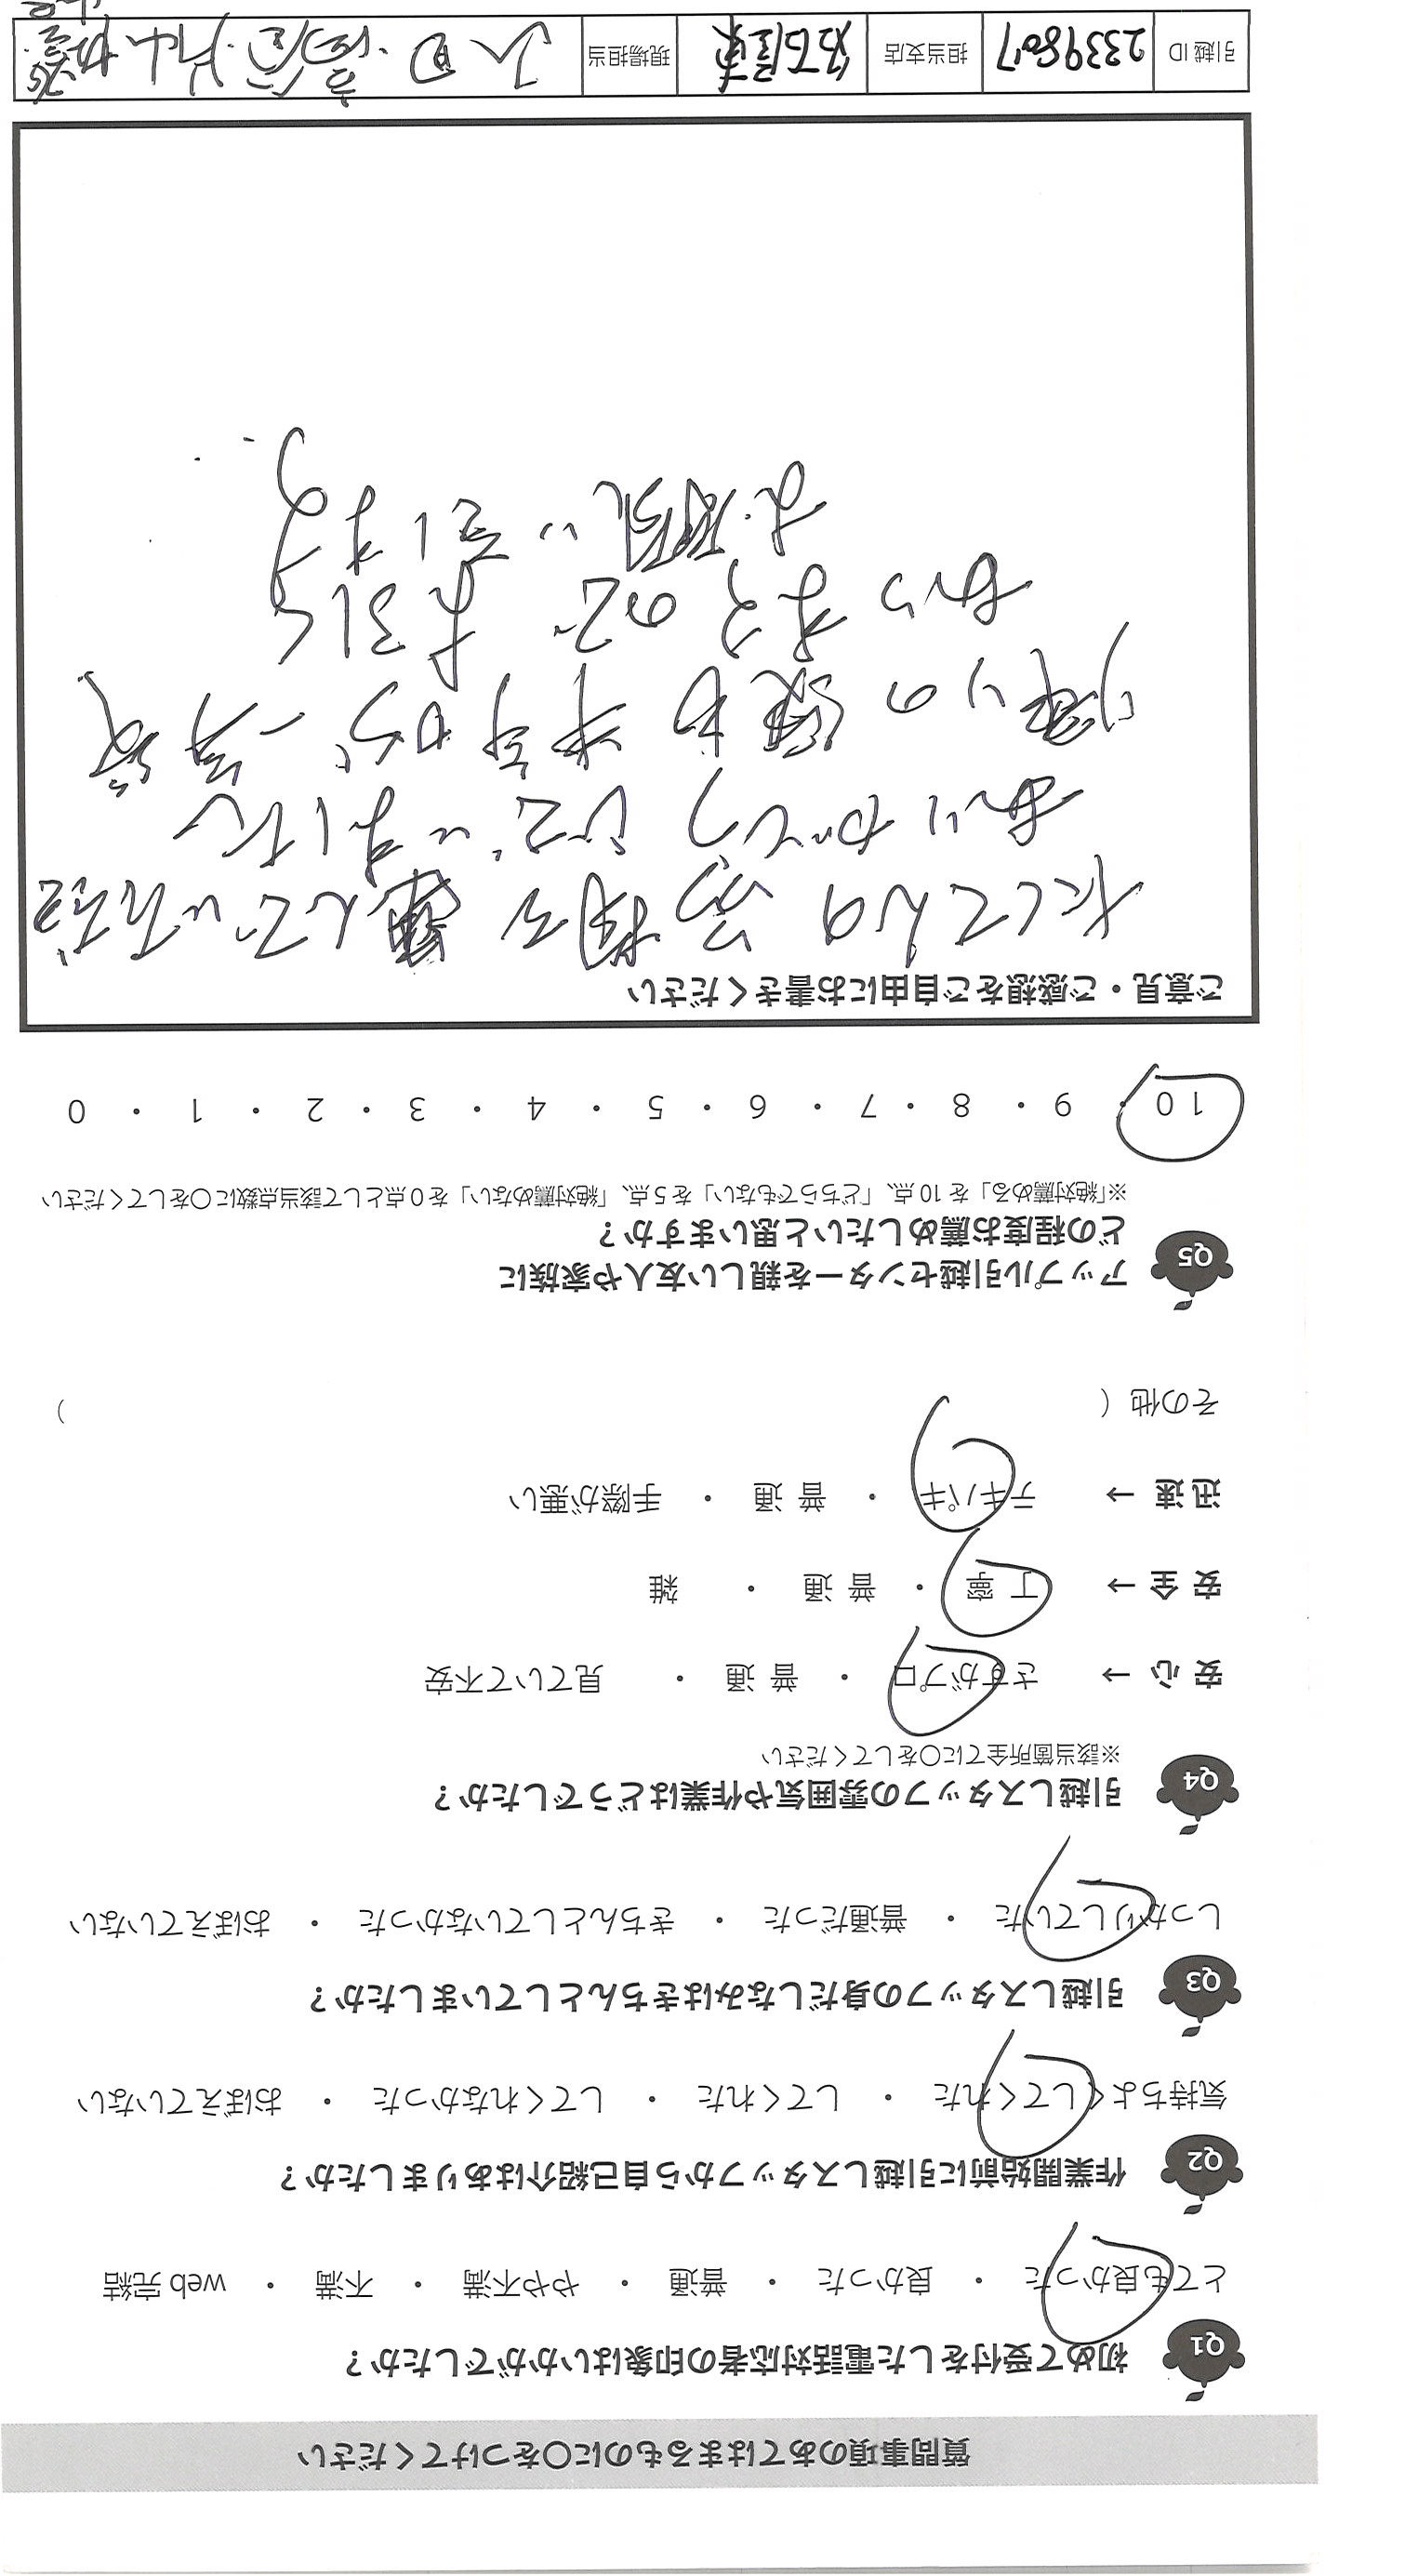 質問事項のあてはまるものに○をつけてください
Q1 初めて受付をした電話対応者の印象はいかがでしたか？
とても良かった ・ 良かった ・ 普通 ・ やや不満 ・ 不満 ・ web 完結
Q2 作業開始前に引越しスタッフから自己紹介はありましたか？
気持ちよくしてくれた ・ してくれた ・ してくれなかった ・ おぼえていない
Q3 引越しスタッフの身だしなみはきちんとしていましたか？
しっかりしていた ・ 普通だった ・ きちんとしていなかった ・ おぼえていない
Q4 引越しスタッフの雰囲気や作業はどうでしたか？
※該当箇所全てに○をしてください
安 心 → さすがプロ ・ 普 通 ・ 見ていて不安
安 全 → 丁 寧 ・ 普 通 ・ 雑
迅 速 → テキパキ ・ 普 通 ・ 手際が悪い
その他（ ）
Q5 アップル引越センターを親しい友人や家族に
どの程度お薦めしたいと思いますか？
※「絶対薦める」を 10 点、「どちらでもない」を 5 点、「絶対薦めない」を 0 点として該当点数に○をしてください
10 ・ 9 ・ 8 ・ 7 ・ 6 ・ 5 ・ 4 ・ 3 ・ 2 ・ 1 ・ 0
ご意見・ご感想をご自由にお書きください
たくさんの荷物を運んでいただき
ありがとうございました
帰りの
ありますので よろしく
お願い致します
引越 ID 2339807 担当支店 名古屋東 現場担当